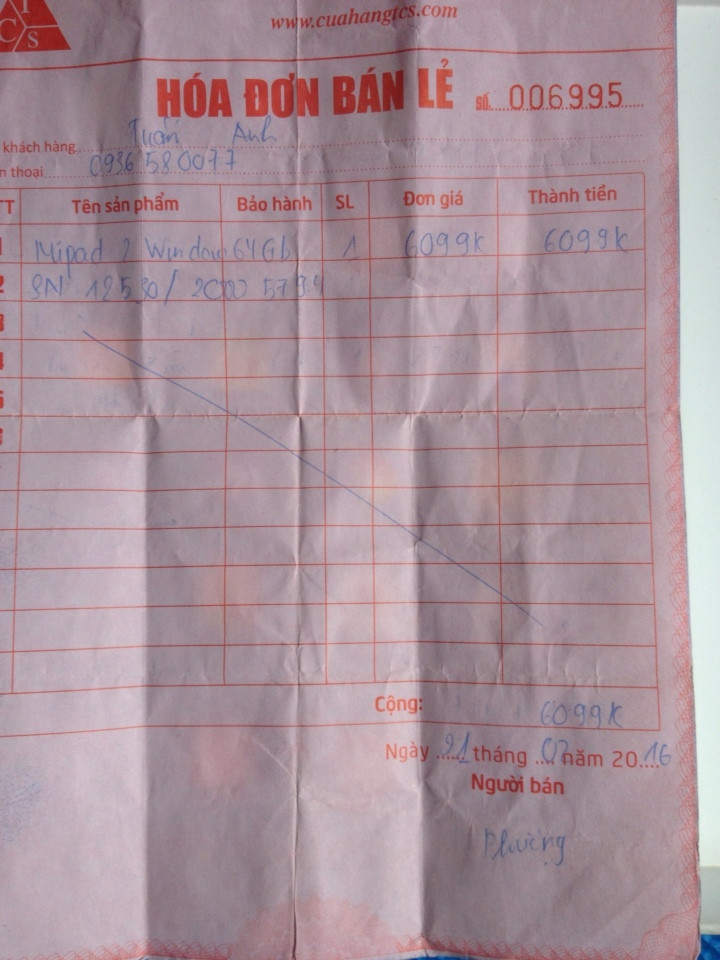 T
C S
www.cuahangtcs.com
HÓA ĐƠN BÁN LẺ Số 006995
khách hàng Tuấn Anh
n thoại 0936580077
TT Tên sản phẩm Bảo hành SL Đơn giá Thành tiền
1 Mipad 2 Window 64Gb 1 6099K 6099K
2 SN 12530/
3
4
5
Cộng: 6099K
Ngày 21 tháng 07 năm 2016
Người bán
Phượng